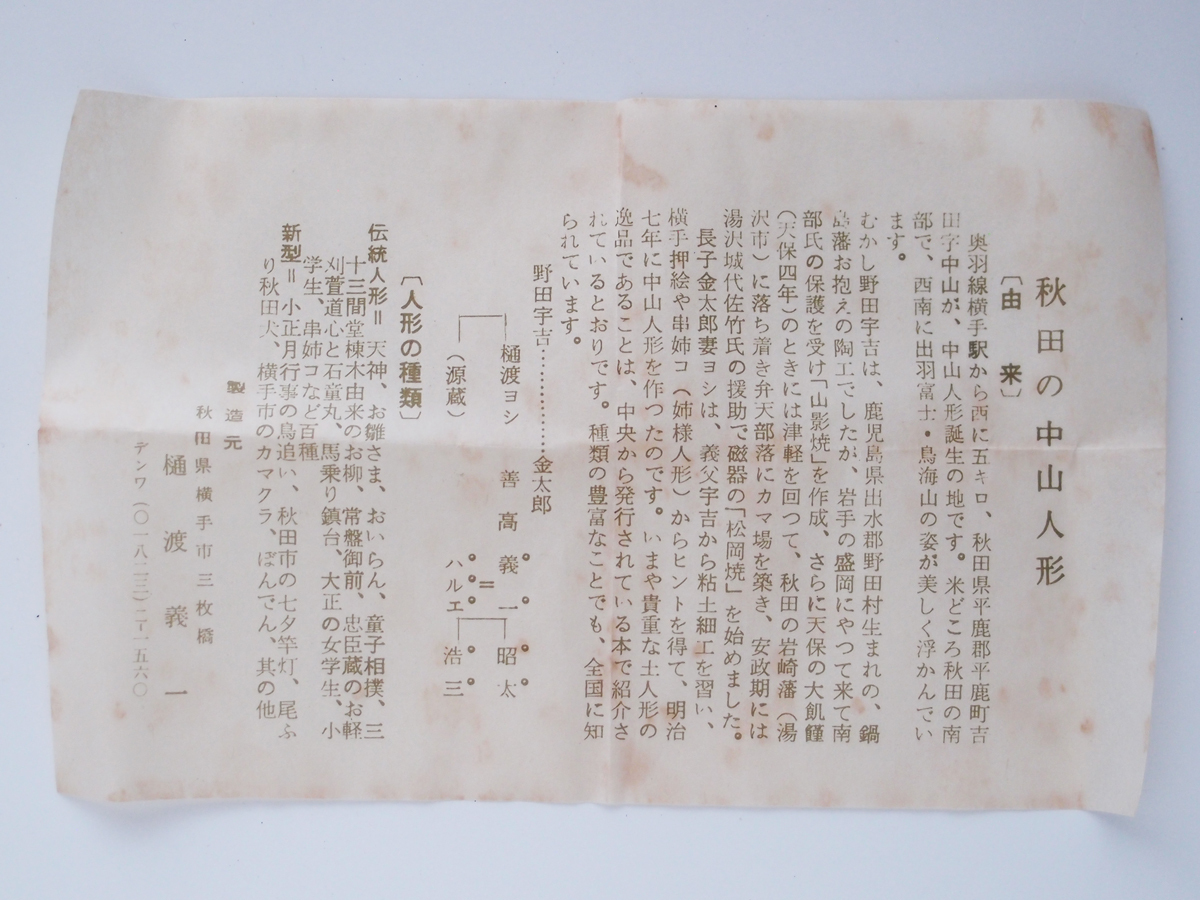 秋田の中山人形
〔由　来〕
奥羽線横手駅から西に五キロ、秋田県平鹿郡平鹿町吉
田字中山が、中山人形誕生の地です。米どころ秋田の南
部で、西南に出羽富士・鳥海山の姿が美しく浮かんでい
ます。
むかし野田宇吉は、鹿児島県出水郡野田村生まれの、鍋
島藩お抱えの陶工でしたが、岩手の盛岡にやつて来て南
部氏の保護を受け「山影焼」を作成、さらに天保の大飢饉
（天保四年）のときには津軽を回つて、秋田の岩崎藩（湯
沢市）に落ち着き弁天部落にカマ場を築き、安政期には
湯沢城代佐竹氏の援助で磁器の「松岡焼」を始めました。
長子金太郎妻ヨシは、義父宇吉から粘土細工を習い、
横手押絵や串姉コ（姉様人形）からヒントを得て、明治
七年に中山人形を作つたのです。いまや貴重な土人形の
逸品であることは、中央から発行されている本で紹介さ
れているとおりです。種類の豊富なことでも、全国に知
られています。
野田宇吉……………金太郎
樋渡ヨシ　善高　義一　昭太
（源蔵）　ハルエ　浩三
〔人形の種類〕
伝統人形＝天神、お雛さま、おいらん、童子相撲、三
十三間堂棟木由来のお柳、常盤御前、忠臣蔵のお軽
刈萱道心と石童丸、馬乗り鎮台、大正の女学生、小
学生、串姉コなど百種
新型＝小正月行事の鳥追い、秋田市の七夕竿灯、尾ふ
り秋田犬、横手市のカマクラ、ぼんでん、其の他
製造元
秋田県横手市三枚橋
樋渡義一
デンワ（〇一八二三）二ー一五六〇